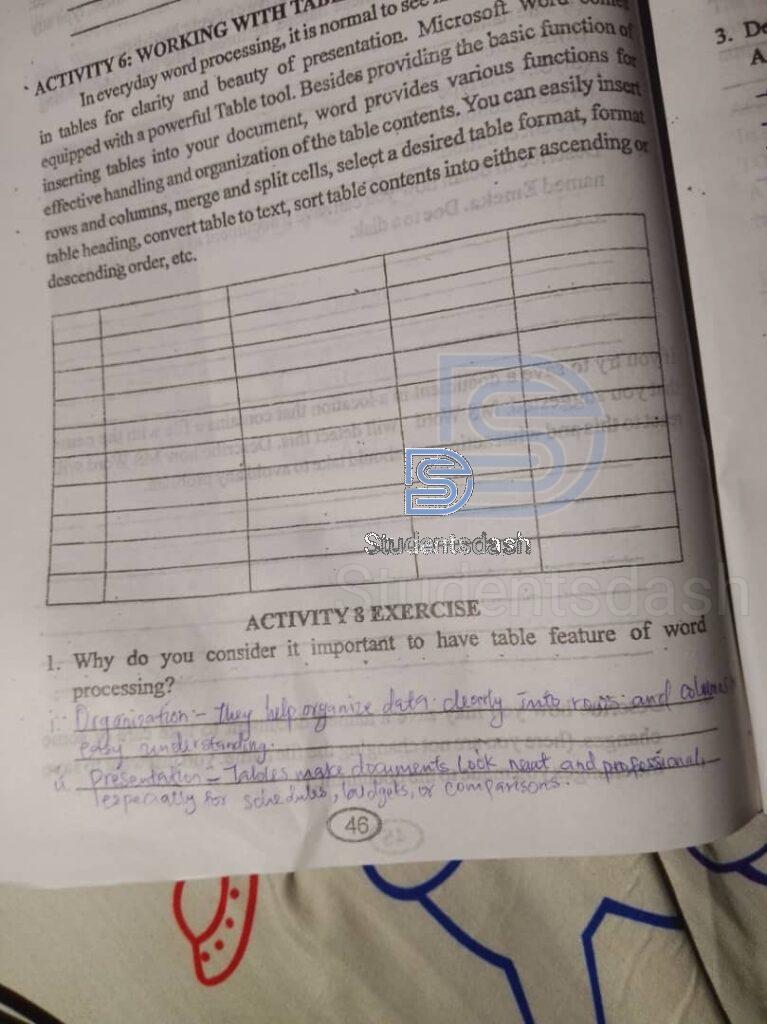 ACTIVITY 6: WORKING WITH
In everyday word processing, it is normal to see
in tables for clarity and beauty of presentation. Microsoft Word comes
equipped with a powerful Table tool. Besides providing the basic function of
inserting tables into your document, word provides various functions for
effective handling and organization of the table contents. You can easily insert
rows and columns, merge and split cells, select a desired table format, format
table heading, convert table to text, sort table contents into either ascending or
descending order, etc.
Studentsdash
Studentsdash
ACTIVITY 8 EXERCISE
1. Why do you consider it important to have table feature of word
processing?
i. Organization:- They help organize data clearly into rows and columns
easy understanding.
ii. Presentation:- Tables make documents look neat and professional,
especially for schedules, budgets, or comparisons.
46
3.
A